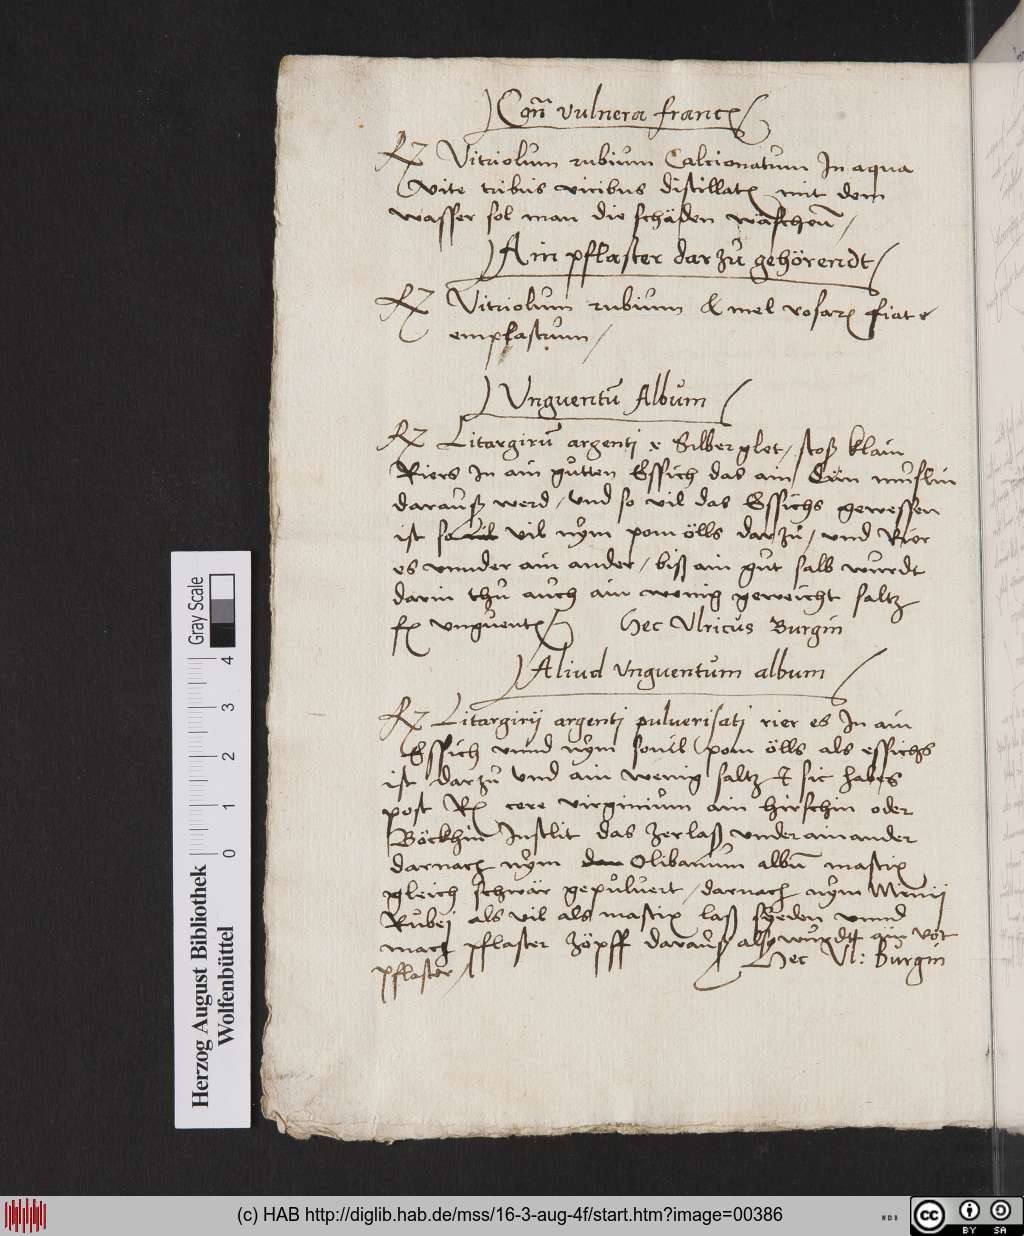 Con̄ vulnera franc
℞ Vitriolum rubium Calcionatum In aqua
vite tribus vicibus distillat mit dem
wasser sol man die schäden wäschen /
Ain pflaster dar zů gehörendt
℞ Vitriolum rubium & mel rosar fiat
emplastrum /
Vnguentū Album
℞ Litargirū argenti Silberglet / stoß klain
Riers In ain gůtten Essich das ain müslin
darauß werd / vnd so vil das Essichs gewessen
ist vil nÿm pom ölls dar zů / vnd Rier
es vnnder ain ander / biß ain gůt salb wurdt
darin thů auch ain wenig geweicht saltz
vnguent Hec Vlricus Burgin
Aliud vnguentum album
℞ Litargirij argenti pulverisati rier es In ain
Essich vnnd nÿm souil pom ölls als essichs
ist dar zů vnd ain wenig saltz & sic habes
post R cere virginium ain hirschin oder
Böckhin Inslit das zerlaß vnder ain ander
darnach nÿm Olibanum albū mastix
gleich schwär gepuluert / darnach nÿm Minij
Rubej als vil als mastix laß syeden vnnd
mach pflaster zöpff darauß also wurdt ain rot
pflaster / Hec Vl: Burgin
Gray Scale
4
3
2
1
0
Herzog August Bibliothek
Wolfenbüttel
(c) HAB http://diglib.hab.de/mss/16-3-aug-4f/start.htm?image=00386
WDB
cc
BY SA